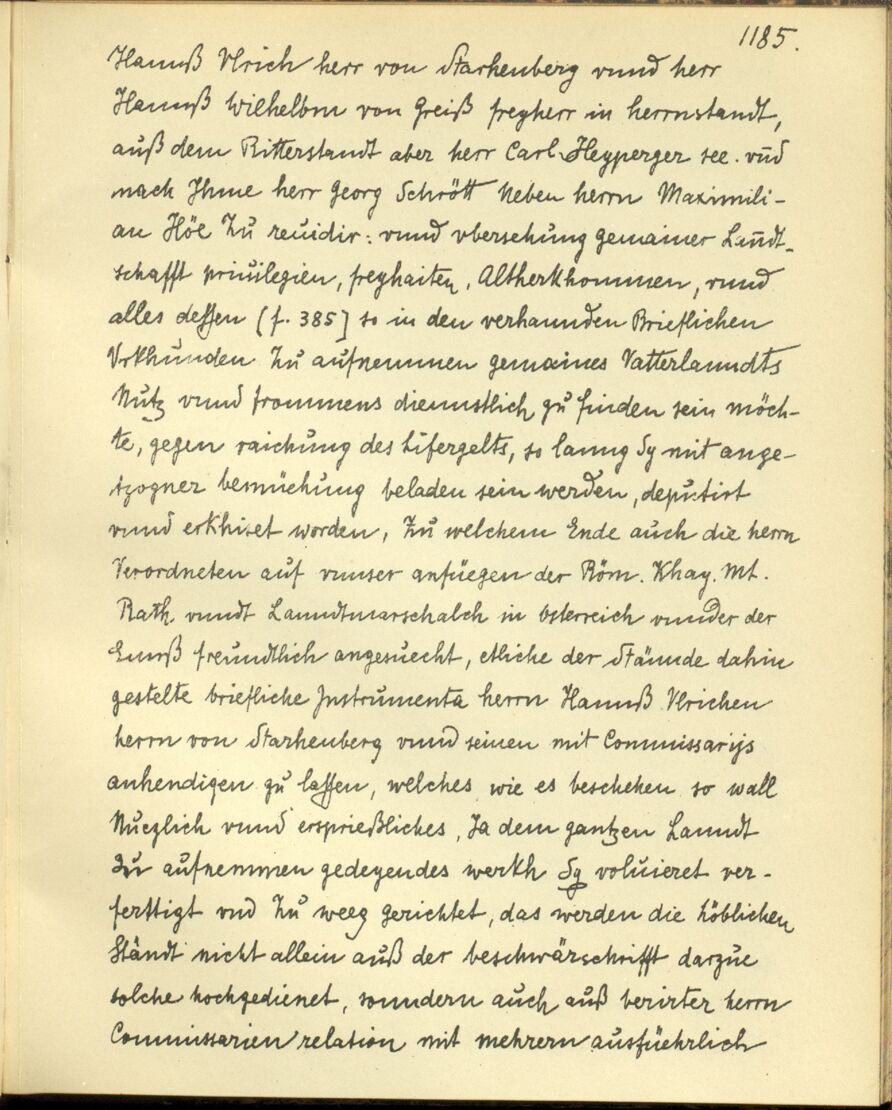 1185.
Hannß Vlrich herr von Starhenberg vnnd herr
Hannß Wilhelbm von Greiß freyherr in herrnstandt,
auß dem Ritterstandt aber herr Carl Heyperger see. vnd
nach Ihme herr Georg Schrött Neben herrn Maximili-
an Höe Zu reuidir: vnnd vbersehung gemainer Lanndt-
schafft priuilegien, freyhaiten, Altherkhommen, vnnd
alles dessen (f. 385] so in den verhannden Brieflichen
Vrkhunden Zu aufnemmen gemaines Vatterlanndts
Nutz vnnd frommens dienstlich zu finden sein möch-
te, gegen raichung des Lifergelts, so lanng Sy mit ange-
tzogner bemüehung beladen sein werden, deputirt
vnnd erkhiset worden, Zu welchem Ende auch die herrn
Verordneten auf vnnser anfüegen der Röm. Khay. Mt.
Rath vnndt Lanndtmarschalch in Osterreich vnnder der
Ennß freundtlich angesuecht, etliche der Stännde dahin
gestelte briefliche Instrumenta herrn Hannß Vlrichen
herrn von Starhenberg vnnd seinen mit Commissarijs
anhendigen zu lassen, welches wie es beschehen so wall
Nuczlich vnnd ersprießliches, Ja dem gantzen Lanndt
Zu aufnemmen gedeyendes werkh Sy voluieret ver-
ferttigt vnd Zu weeg gerichtet, das werden die Löblichen
Ständt nicht allein auß der beschwärschrifft darzue
solche hochgedienet, sonndern auch auß berirter herrn
Commissarien relation mit mehrern ausfüehrlich